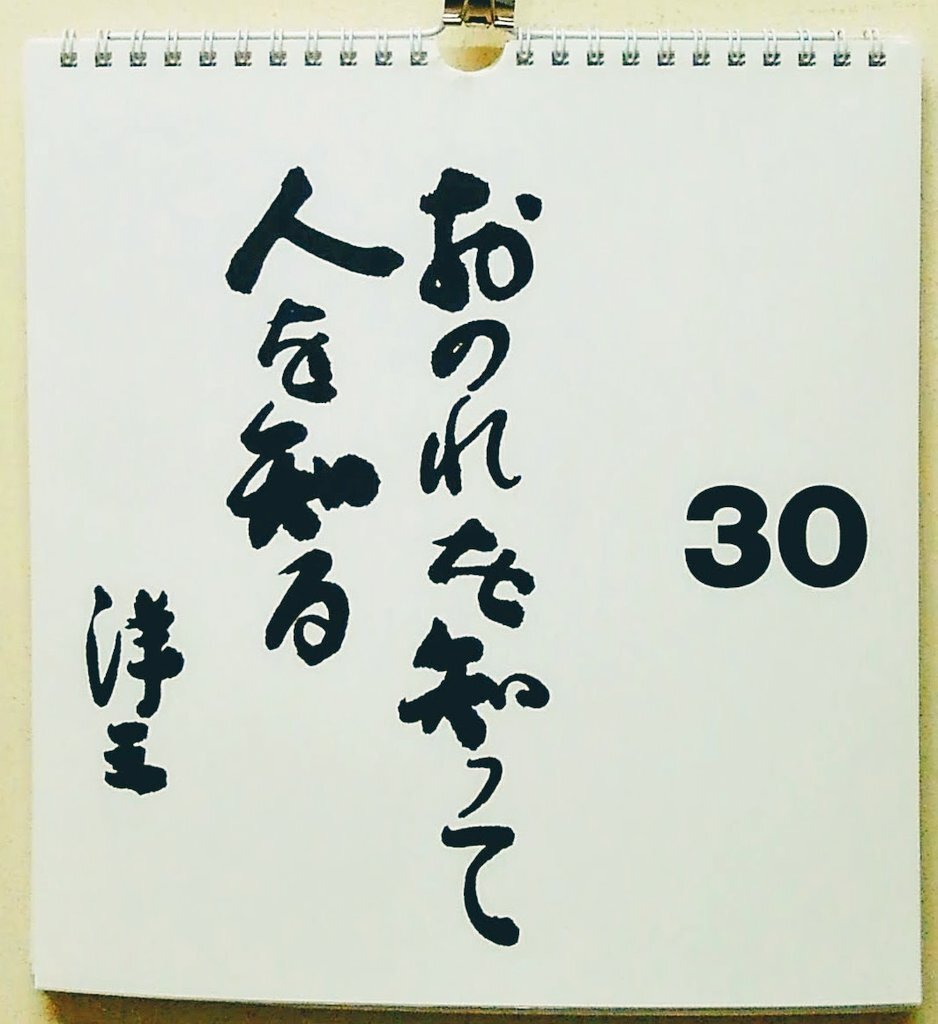 30
おのれを知って
人を知る
洋三